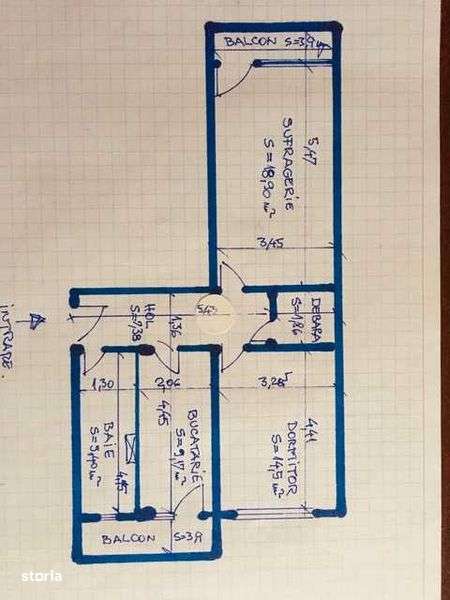 BALCON S=3,9
5,47
SUFRAGERIE
S=18,90 m²
3,45
DEBARA
S=1,86
HOL
S=7,38
1,36
INTRARE.
1,30
2,06
3,285
BAIE
S=5,40 m²
4,15
BUCATARIE
S=9,17 m²
4,45
DORMITOR
S=14,5 m²
4,41
BALCON S=3,9
storia